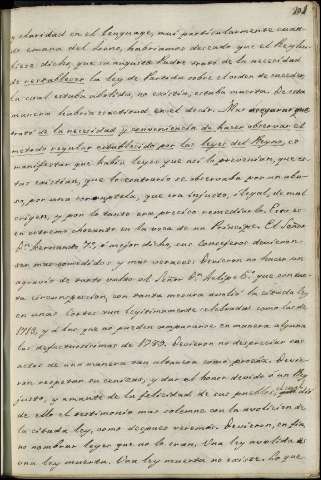 y claridad en el lenguage, mui particularmente cuan-
do emana del trono, habriamos deseado que el Rey hu-
biese dicho, que su augusto Padre trató de la necesidad
de restablecer la ley de Partida sobre el orden de suceder,
la cual estaba abolida, no existia, estaba muerta. De esta
manera habria exactitud en el decir. Mas asegurar que
trató de la necesidad y conveniencia de hacer observar el
metodo regular establecido por las leyes del Reyno, es
manifestar que habia leyes que asi lo prevenian, que es-
tas existian, que lo contrario se observaba por un abu-
so, por una corruptela, que era injusto, ilegal, de mal
origen, y por lo tanto era preciso remediarlo. Esto es
en estremo chocante en la boca de un Principe. El Señor
Dn. Fernando 7º, ó mejor dicho, sus Consejeros devieron
ser mas comedidos y mas veraces. Devieron no hacer un
agravio de tanto vulto al Señor Dn. Felipe 5º que con tan-
ta circunspeccion, con tanta mesura abolió la citada ley
en unas Cortes tan legitimamente celebradas como las de
1713, y á las que no pueden compararse en manera alguna
las defectuosisimas de 1789. Devieron no despreciar sus
actos de una manera tan
ron respetar su cenizas, y dar al honor devido á un Rey
justo, y amante de la felicidad de sus pueblos,
de ello el testimonio mas solemne con la avolicion de
la citada ley, como despues veremos. Devieron, en fin,
no nombrar leyes que no lo eran. Una ley avolida es
una ley muerta. Una ley muerta no existe. Lo que